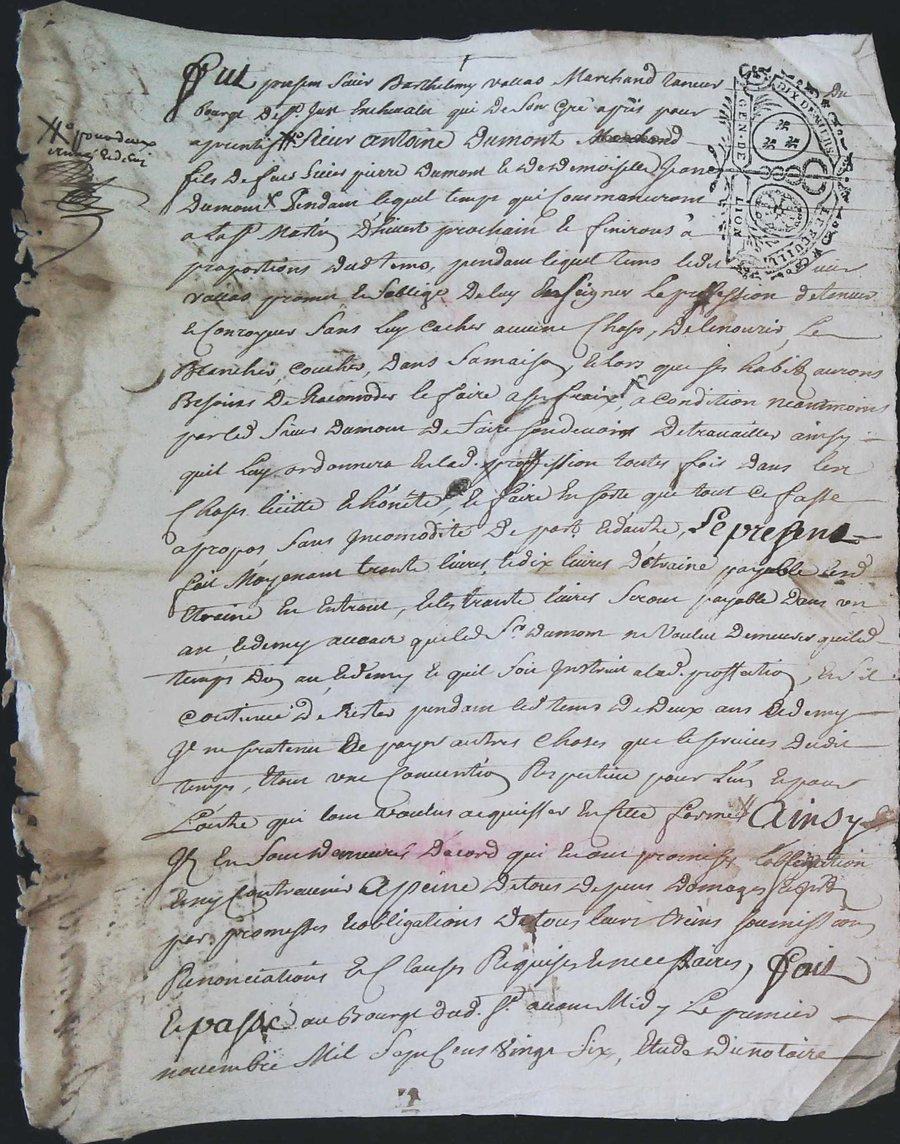 Fut present Sieur Barthelemy vallas Marchand taneur du
Bourg De St. Just Enchevalu qui De Son Gré a pris pour
aprentif Sieur antoine Dumont Marchand
fils De feus Sieur pierre Dumont et de Demoiselle Jeane
Dumont Pendant lequel temps qui Commanceront
a la St. Martin D'hivert prochain et finiront à
proportions dud. tems, pendant lequel tems ledit Sieur
vallas promet et Soblige De luy Enseigner Le proffession de tanneur
et Conroyeur Sans luy cacher aucune Chose, De le nourir, Le
Blanchir, coucher, Dans Samaison, et lors que ses habits auront
Besoins De Racomoder le faire a ses fraix, a condition neantmoins
par led Sieur Dumont De faire son devoir De travailler ainsy
quil Luy ordonnera En lad. proffession toutes fois dans les
Choses licitte et honéte, et faire En sorte que tout Ce fasse
a propos, Sans Incomodité De part et dautre, Le present
fait Moyenant trante livres, et dix livres Détraine payable led
Etraine En Entrant, et les trante livres Seront payable Dans un
an et demy au cas que led Sr. Dumont ne Voulut Demeurer que led
temps Dun an et demy et quil Soit Instruit a lad. proffession, et Sil
continue De Rester pendant led tems De Deux ans et demy
Il ne sera tenu De payer autres Choses que le services Dudit
temps, Etant une Convention Respective pour L'un et pour
L'autre qui lont voulus acquisser En cette forme Ainsy
Ils En Sont Demeurés D'acord qui En ont promis L'observation
peine De tous Depens Domages
par promesses et obligations De tous leurs Biens soumissions
Renonciations Et Clauses Requises et necessaires, Fait
Et passé au Bourg Dud. St. avant Midy Le premier
novembre Mil Sept Cens Vingt Six, Etude Du notaire
pour deux
DIX DENIERS
LE FEUILL
GEN DE
LION